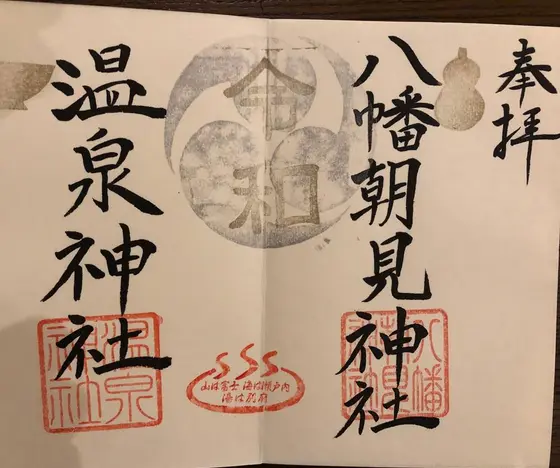 奉拝
八幡朝見神社
八幡朝見神社
令和
山は富士 海は瀬戸内
湯は別府
温泉神社
温泉神社